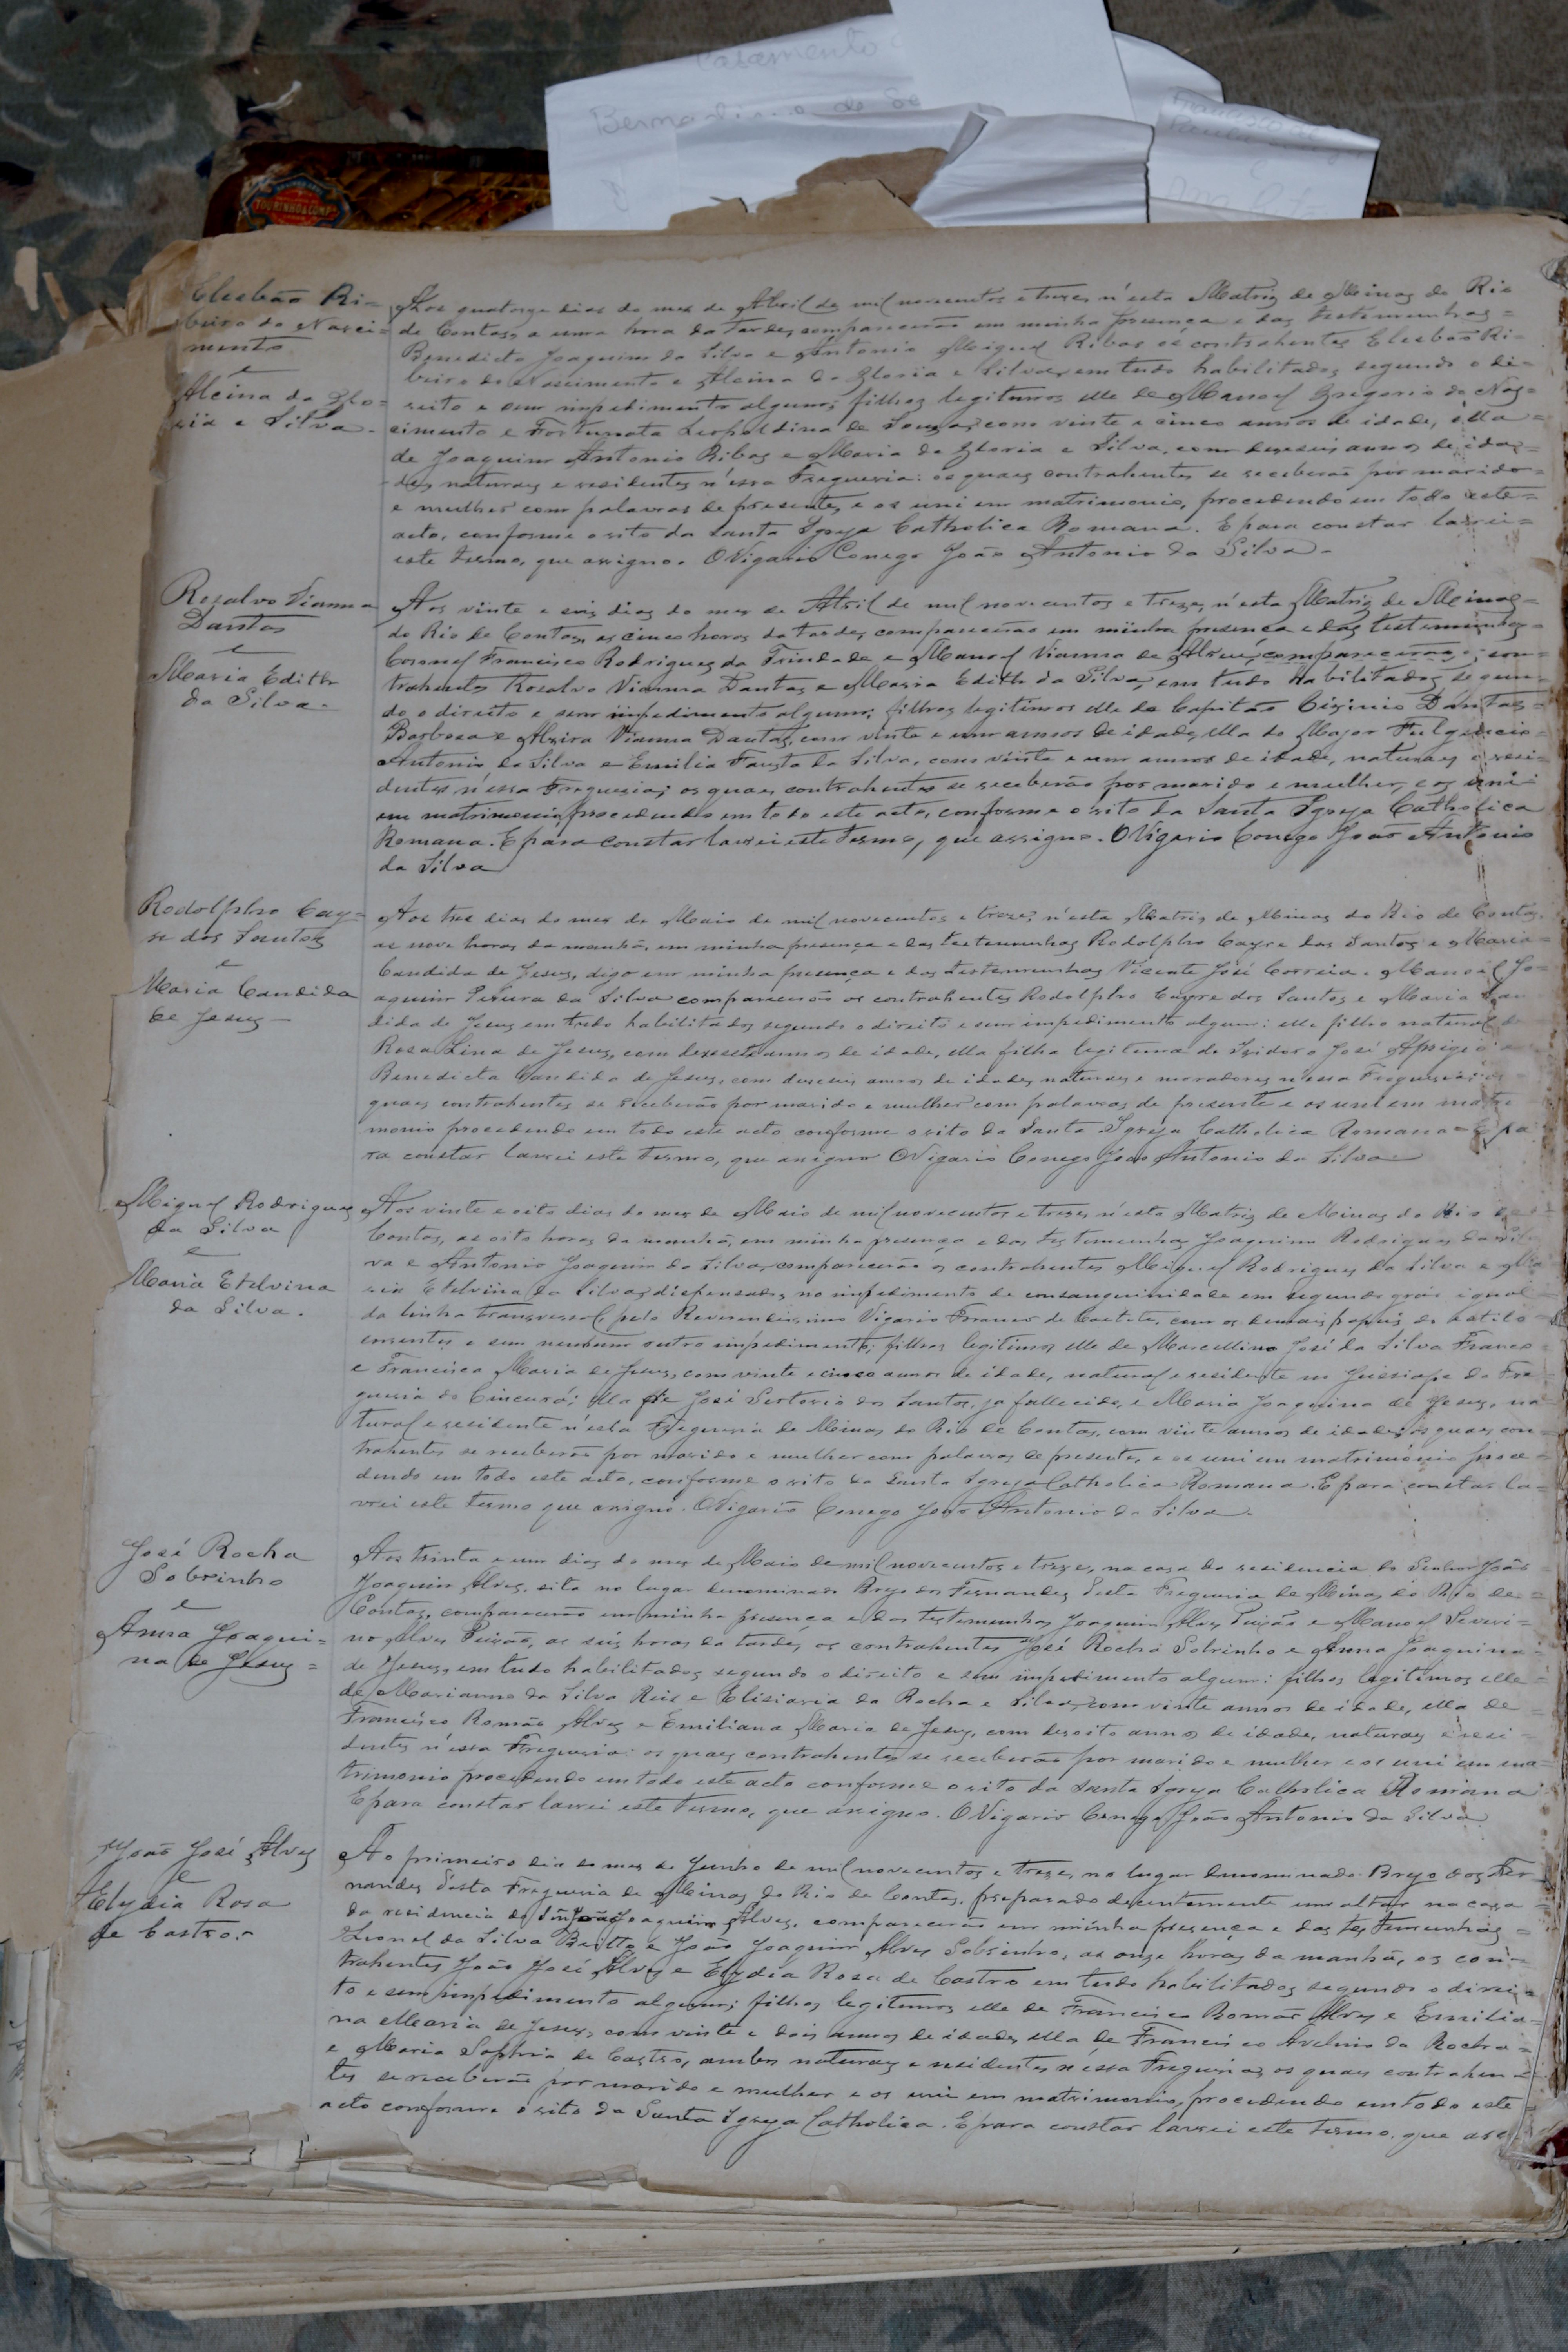 Casamento
Bernardino de So
TOURINHO & COMP
Elesbão Ri=
beiro do Nasci=
mento
e
Alcina da Glo=
ria e Silva.
Aos quatorze dias do mez de Abril de mil novecentos e treze, n'esta Matriz de Minas do Rio
de Contas, a uma hora da tarde, comparecerão em minha presença e das testemunhas=
Benedicto Joaquim da Silva e Antonio Miguel Ribas os contrahentes Elesbão Ri=
beiro do Nascimento e Alcina da Gloria e Silva, em tudo habilitados segundo o di=
reito e sem impedimento algum; filhos legitimos elle de Manoel Gregorio do Nas=
cimento e Fortunata Leopoldina de Souza, com vinte e cinco annos de idade, ella=
de Joaquim Antonio Ribas e Maria da Gloria e Silva, com deseseis annos de ida=
de, naturaes e residentes n'essa Freguesia: os quaes contrahentes se receberão por marido=
e mulher com palavras de presente, e os uni em matrimonio, procedendo em todo este=
acto, conforme o rito da Santa Igreja Catholica Romana. E para constar lavrei=
este termo, que assigno. O Vigario Conego João Antonio da Silva.
Rosalvo Vianna
Dantas
e
Maria Edith
da Silva.
Aos vinte e seis dias do mez de Abril de mil novecentos e treze, n'esta Matriz de Minas=
do Rio de Contas, as cinco horas da tarde, comparecerão em minha presença e das testemunhas=
Coronel Francisco Rodrigues da Trindade e Manoel Vianna de comparecerão con=
trahentes Rosalvo Vianna Dantas e Maria Edith da Silva, em tudo habilitados segun=
do o direito e sem impedimento algum; filhos legitimos elle do Capitão Dantas=
Barbosa e Alzira Vianna Dantas, com vinte e um annos de idade, ella do Major Fulgencio=
Antonio da Silva e Emilia Fausta da Silva, com vinte e um annos de idade, naturaes e resi=
dentes n'essa Freguesia; os quaes contrahentes se receberão por marido e mulher, e os uni=
em matrimonio, procedendo em todo este acto, conforme o rito da Santa Igreja Catholica
Romana. E para constar lavrei este termo, que assigno. O Vigario Conego João Antonio
da Silva
Rodolpho Cay=
re dos Santos
e
Maria Candida
de Jesus
Aos tres dias do mez de Maio de mil novecentos e treze, n'esta Matriz de Minas do Rio de Contas,
as nove horas da manhã, em minha presença e das testemunhas Rodolpho Cayre dos Santos e Maria=
Candida de Jesus, digo em minha presença e das testemunhas Vicente José Correia e Manoel Jo=
aquim da Silva comparecerão os contrahentes Rodolpho Cayre dos Santos e Maria Can
dida de Jesus em tudo habilitados segundo o direito e sem impedimento algum: elle filho natural de
Rosa Lina de Jesus, com desesete annos de idade, ella filha legitima de Izidoro José Aprigio e
Benedicta Candida de Jesus, com deseseis annos de idade, naturaes e moradores n'essa Freguesia: os
quaes contrahentes se receberão por marido e mulher com palavras de presente e os uni em matri
monio procedendo em todo este acto conforme o rito da Santa Igreja Catholica Romana. E pa
ra constar lavrei este termo, que assigno O Vigario Conego João Antonio da Silva
Miguel Rodrigues
da Silva
e
Maria Etelvina
da Silva.
Aos vinte e oito dias do mez de Maio de mil novecentos e treze, n'esta Matriz de Minas do Rio de
Contas, as oito horas da manhã, em minha presença e das testemunhas Joaquim Rodrigues da Sil
va e Antonio Joaquim da Silva, comparecerão os contrahentes Miguel Rodrigues da Silva e Ma
ria Etelvina da Silva, dispensados no impedimento de consanguinidade em segundo gráo igual
da linha transversal pelo Reverendissimo Vigario de Caetité, com os demais papeis do estilo
correntes e sem nenhum outro impedimento; filhos legitimos elle de Marcellino José da Silva Franco
e Francisca Maria de Jesus, com vinte e cinco annos de idade, natural e residente em Jussiape da Fre
guesia do Sincorá; ella de José Sertorio dos Santos, ja fallecido, e Maria Joaquina de Jesus, na
tural e residente n'esta Freguesia de Minas do Rio de Contas, com vinte annos de idade; os quaes con
trahentes se receberão por marido e mulher com palavras de presente, e os uni em matrimonio proce=
dendo em todo este acto, conforme o rito da Santa Igreja Catholica Romana. E para constar la=
vrei este termo que assigno. O Vigario Conego João Antonio da Silva.
José Rocha
Sobrinho
e
Anna Joaqui=
na de Jesus=
Aos trinta e um dias do mez de Maio de mil novecentos e treze, na casa da residencia do Senhor João
Joaquim Alves, sita no lugar denominado Brejo dos Fernandes desta Freguesia de Minas do Rio de=
Contas, comparecerão em minha presença e das testemunhas Joaquim Alves e Manoel Severi=
no Alves, as seis horas da tarde, os contrahentes José Rocha Sobrinho e Anna Joaquina
de Jesus, em tudo habilitados segundo o direito e sem impedimento algum: filhos legitimos elle
de Marianno da Silva Reis e Elisiaria da Rocha e Silva, com vinte annos de idade, ella de
Francisco Romão Alves e Emiliana Maria de Jesus, com desoito annos de idade, naturaes e resi=
dentes n'essa Freguesia: os quaes contrahentes se receberão por marido e mulher e os uni em ma
trimonio procedendo em todo este acto conforme o rito da Santa Igreja Catholica Romana.
E para constar lavrei este termo, que assigno. O Vigario Conego João Antonio da Silva
João José Alves
e
Elydia Rosa
de Castro.
Ao primeiro dia do mez de Junho de mil novecentos e treze, no lugar denominado Brejo dos Fer
nandes desta Freguesia de Minas do Rio de Contas, preparado decentemente um altar na casa
da residencia do Snr João Joaquim Alves, comparecerão em minha presença e das testemunhas=
Leonel da Silva Britto e João Joaquim Alves Sobrinho, as onze horas da manhã, os con=
trahentes João José Alves e Elydia Rosa de Castro em tudo habilitados segundo o direi=
to e sem impedimento algum; filhos legitimos elle de Francisco Romão Alves e Emilia=
na Maria de Jesus, com vinte e dois annos de idade, ella de Francisco Avelino da Rocha=
e Maria Sophia de Castro, ambos naturaes e residentes n'essa Freguesia; os quaes contrahen=
tes se receberão por marido e mulher e os uni em matrimonio, procedendo em todo este
acto conforme o rito da Santa Igreja Catholica. E para constar lavrei este termo, que ass